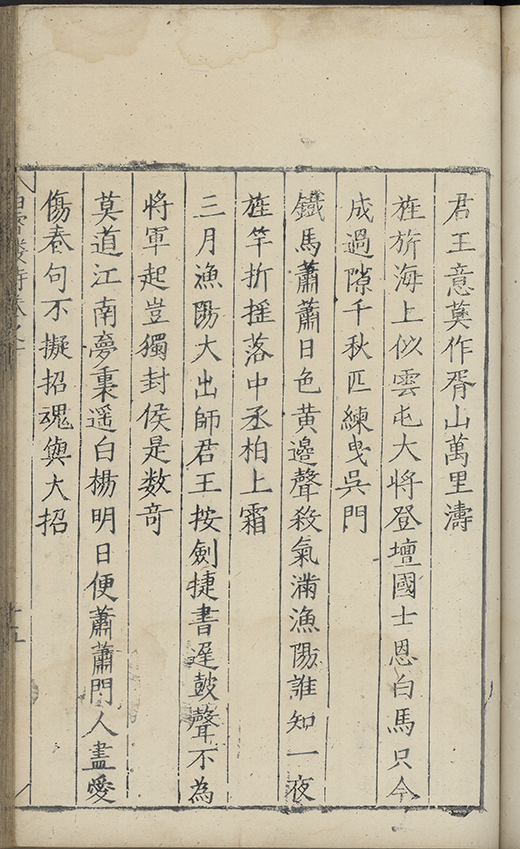 君王意莫作胥山萬里濤
旌旂海上似雲屯大將登壇國士恩白馬只今
成過隙千秋匹練曳吳門
鐵馬蕭蕭日色黃邊聲殺氣滿漁陽誰知一夜
旌竿折搖落中丞柏上霜
三月漁陽大出師君王按劍捷書遲鼓聲不為
將軍起豈獨封侯是数竒
莫道江南夢裏遥白楊明日便蕭蕭門人盡愛
傷春句不擬招魂與大招